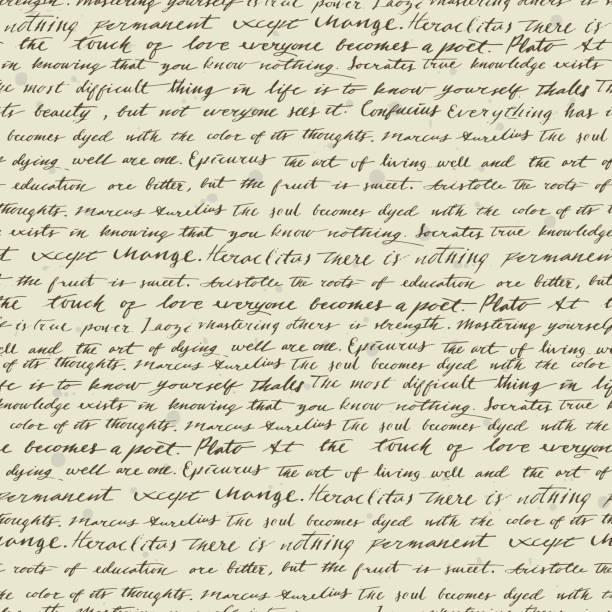 strength. Mastering yourself is true power Laozi mastering others is
nothing permanent except change. Heraclitus There is
the touch of love everyone becomes a poet. Plato At
in knowing that you know nothing. Socrates True knowledge exists
most difficult thing in life is to know yourself Thalls The
its beauty, but not everyone sees it. Confucius Everything has i
becomes dyed with the color of its thoughts. Marcus Aurelius The soul
dying well are one. Epicurus The art of living well and the art of
education are bitter, but the fruit is sweet. Aristotle The roots of
thoughts. Marcus Aurelius The soul becomes dyed with the color of its t
exists in knowing that you know nothing. Socrates True knowledge
t except change. Heraclitus There is nothing permanen
the fruit is sweet. Aristotle The roots of education are bitter, but
the touch of love everyone becomes a poet. Plato At t
is true power Laozi mastering others is strength. Mastering yourself
ell and the art of dying well are one. Epicurus The art of living we
of its thoughts. Marcus Aurelius The soul becomes dyed with the color
fe is to know yourself Thalls The most difficult thing in lif
knowledge exists in knowing that you know nothing. Socrates True
color of its thoughts. Marcus Aurelius The soul becomes dyed with the
e becomes a poet. Plato At the touch of love everyon
dying well are one. Epicurus The art of living well and the art of
permanent except change. Heraclitus There is nothing p
thoughts. Marcus Aurelius The soul becomes dyed with the color of its th
hange. Heraclitus There is nothing permanent except ch
roots of education are bitter, but the fruit is sweet. Aristotle The
the color of its thoughts. Marcus Aurelius The soul becomes dyed with
Mastering yourself is true power Laozi mastering others